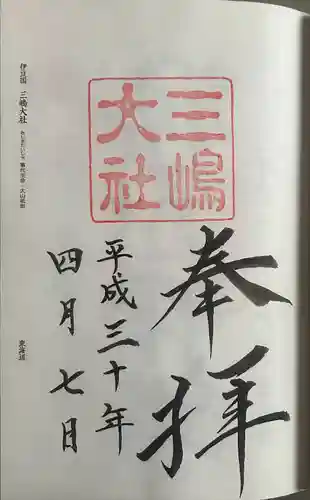 奉拝
三嶋大社
平成三十年
四月七日
伊豆国 三嶋大社
東海道